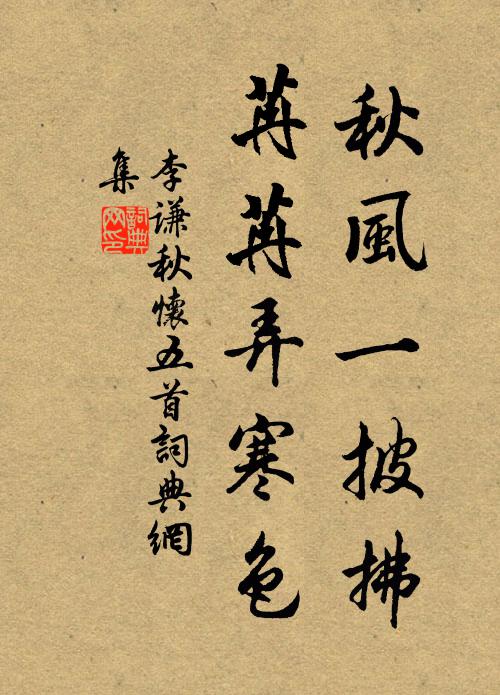 秋風一披拂
苒苒弄寒色
李谦秋懷五首詞典網
集
詞典
网印